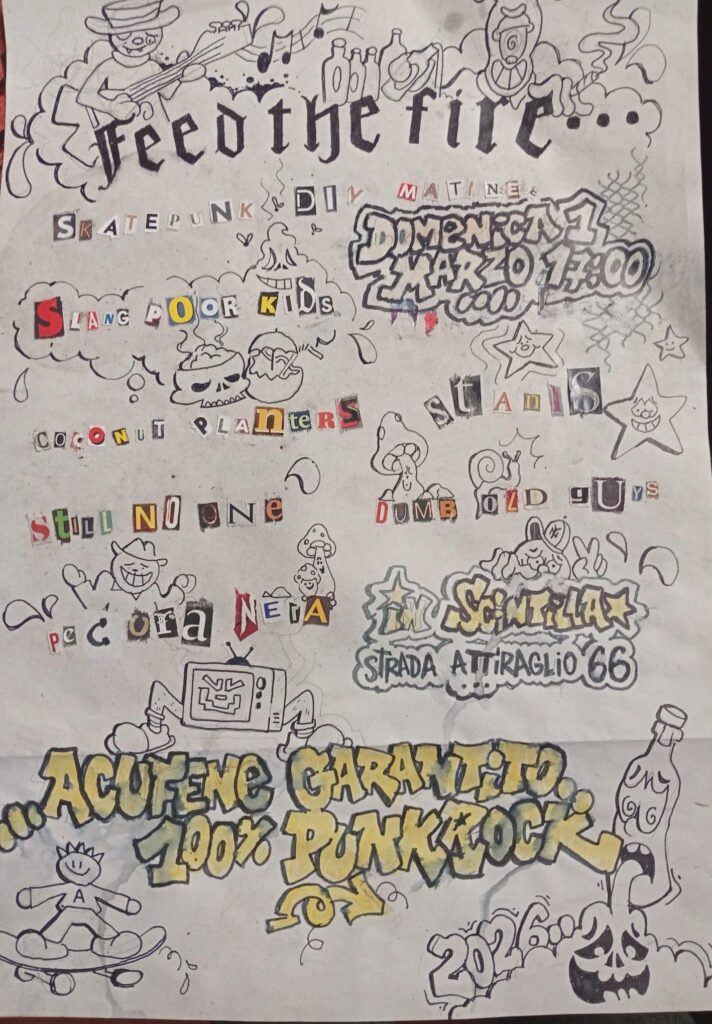 Feed the fire...
SKATEPUNK DIY MATINEE
DOMENICA 1
MARZO 17:00
SLANG POOR KIDS
STANIS
COCONUT PLANTERS
STILL NO ONE
DUMB OLD GUYS
PECORA NERA
IN SCINTILLA
STRADA ATTIRAGLIO 66
...ACUFENE GARANTITO..
100% PUNKROCK.
A
2026...